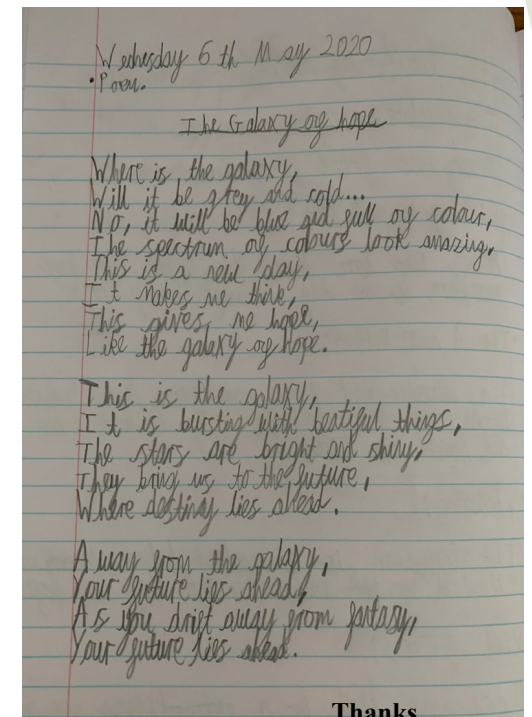 Wednesday 6 th May 2020
• Poem.
The Galaxy of hope
Where is the galaxy,
Will it be grey and cold...
No, it will be blue and full of colour,
The spectrum of colours look amazing,
This is a new day,
It makes me think,
This gives me hope,
Like the galaxy of hope.
This is the galaxy,
It is bursting with beatiful things,
The stars are bright and shiny,
They bring us to the future,
Where destiny lies ahead.
Away from the galaxy,
Your future lies ahead,
As you drift away from fantasy,
Your future lies ahead.
Thanks